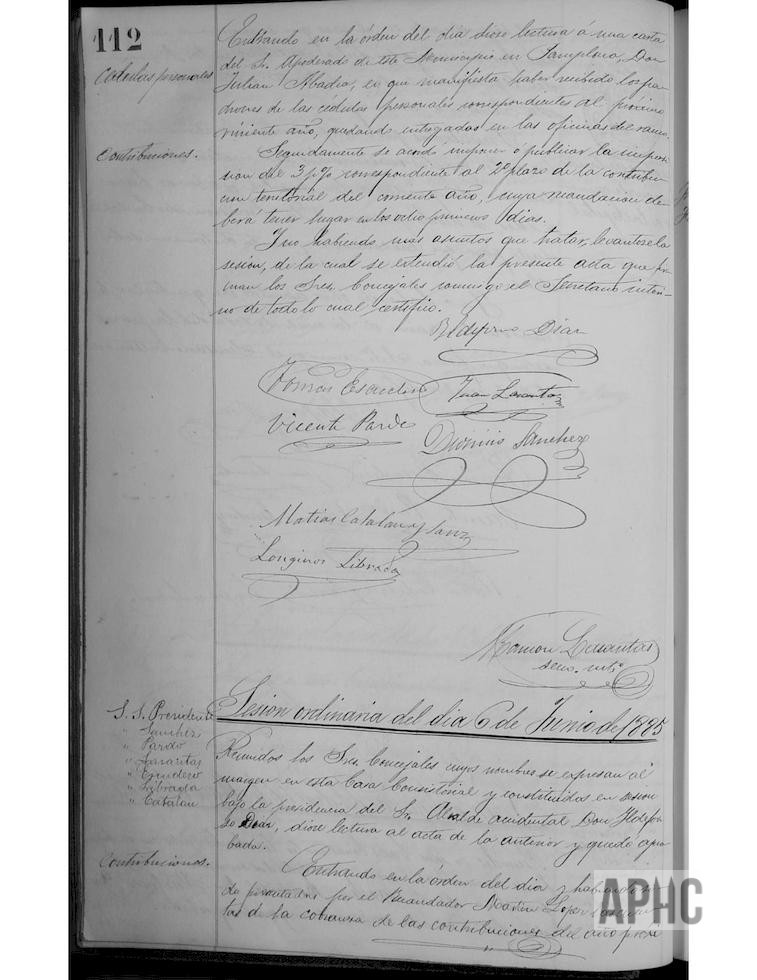 112
Cédulas personales
Entrando en la órden del dia diose lectura á una carta
del S. Apoderado de este Municipio en Pamplona, Don
Julian Abadia, en que manifiesta haber recibido los pa-
drones de las cedulas personales correspondientes al próximo
viniente año, quedando entregadas en las oficinas del ramo.
Contribuciones.
Seguidamente se acordó imponer ó publicar la imposi
cion del 3 p% correspondiente al 2º plazo de la contribu
cion territorial del corriente año, cuya recaudacion de
berá tener lugar en los ocho primeros dias.
Y no habiendo mas asuntos que tratar, levantose la
sesion, de la cual se extendió la presente acta que fir
man los Sres. Concejales conmigo el Secretario interi-
no de todo lo cual certifico.
Ildefonso Diaz
Tomás Escudero
Juan Lasantas
Vicente Pardo
Dionisio Sanchez
Matias Catalan y Sanz
Longinos Librada
Ramon Lasantas
secr. intº
Sesion ordinaria del dia 6 de Junio de 1885
S. S. Presidente
" Sanchez
" Pardo
" Lasantas
" Escudero
" Librada
" Catalan
Reunidos los Sres. Concejales cuyos nombres se expresan al
margen en esta Casa Consistorial y constituidos en sesion
bajo la presidencia del Sr. Alcalde accidental Don Ildefon
so Diaz, diose lectura al acta de la anterior y quedó apro
bada.
Contribuciones.
Entrando en la órden del dia y habiendo
presentadas por el Recaudador Martin Lopez
tas de la cobranza de las contribuciones del año proxi
APHC